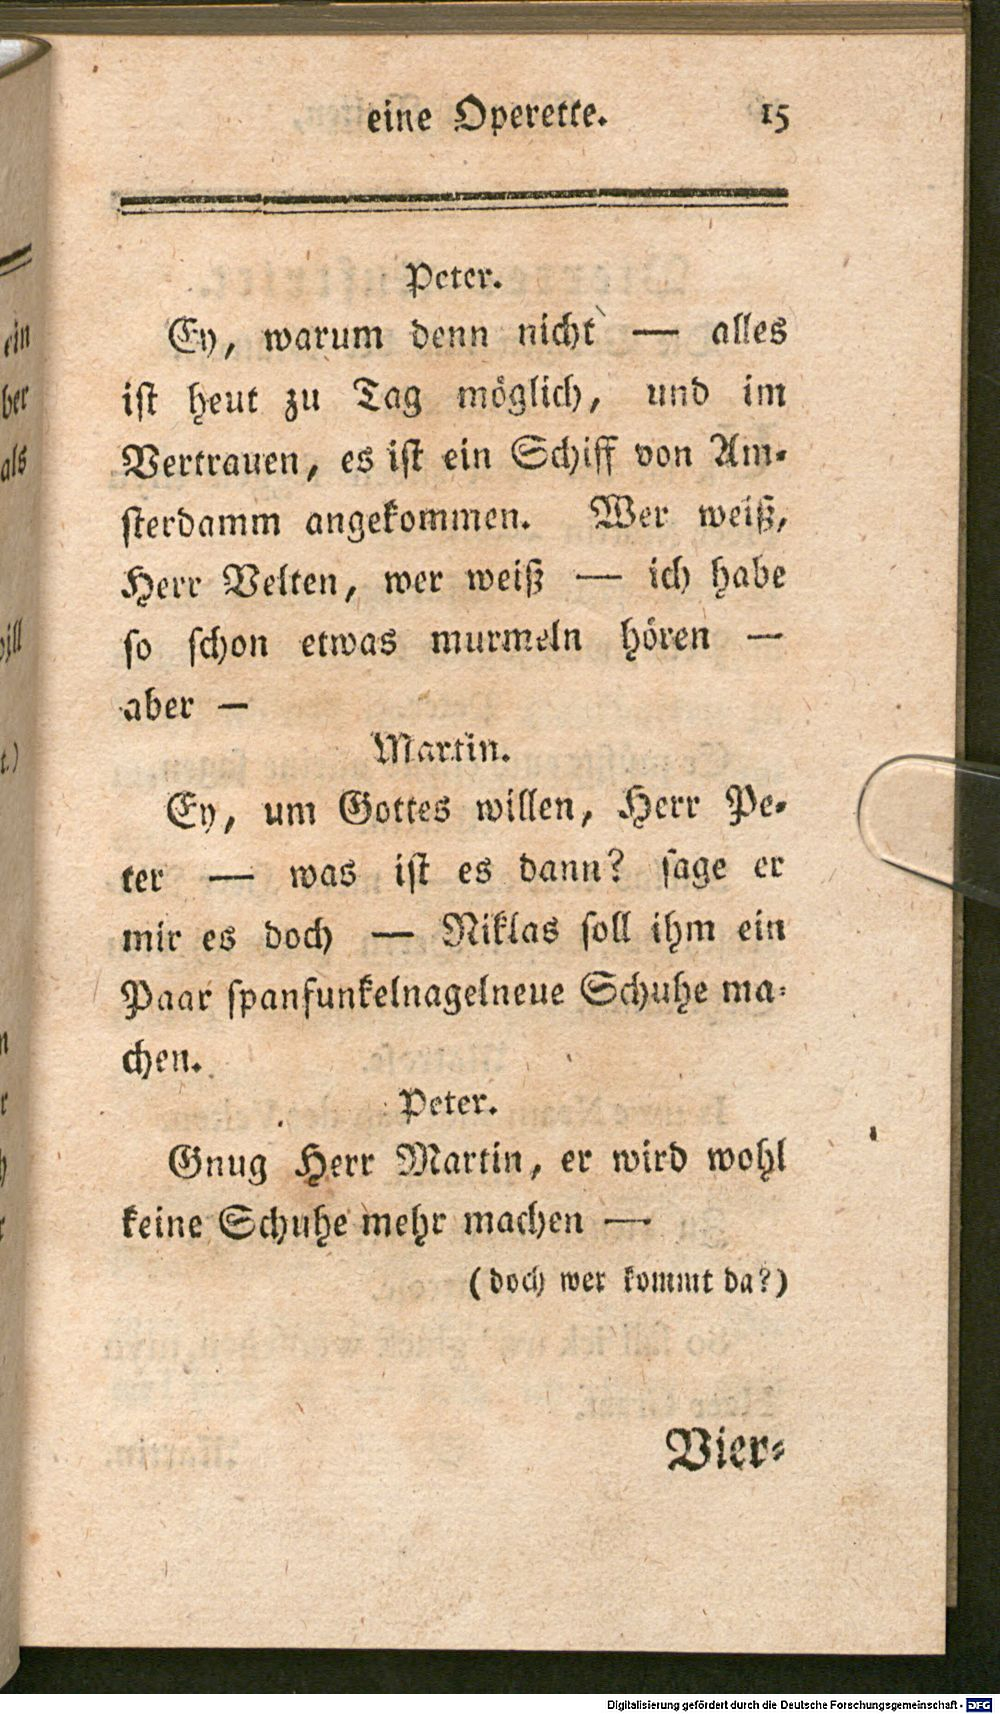 eine Operette. 15
Peter.
Ey, warum denn nicht — alles
ist heut zu Tag möglich, und im
Vertrauen, es ist ein Schiff von Am-
sterdamm angekommen. Wer weiß,
Herr Velten, wer weiß — ich habe
so schon etwas murmeln hören —
aber —
Martin.
Ey, um Gottes willen, Herr Pe-
ter — was ist es dann? sage er
mir es doch — Niklas soll ihm ein
Paar spanfunkelnagelneue Schuhe ma-
chen.
Peter.
Gnug Herr Martin, er wird wohl
keine Schuhe mehr machen —
(doch wer kommt da?)
Vier-
ein
als
Digitalisierung gefördert durch die Deutsche Forschungsgemeinschaft - DFG